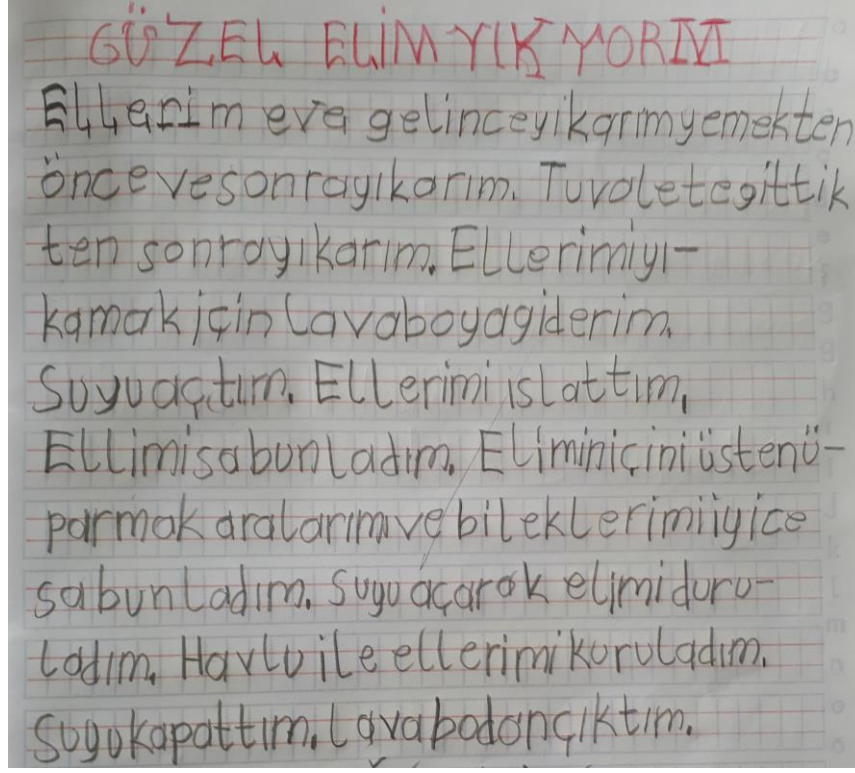 GÜZEL ELİM YIKYORM
Ellerim eve gelinceyıkarımyemekten
öncevesonrayıkarım. Tuvaletegittik
ten sonrayıkarım. Ellerimiyı-
kamakiçin lavaboyagiderim.
Suyuaçtım. Ellerimi ıslattım,
Ellimisabunladım. Eliminiçiniüstenü-
parmak aralarımve bileklerimiiyice
sabunladım. Suyu açarak elimiduru-
ladım. Havlu ile ellerimikuruladım.
Suyukapattım. Lavabodançıktım.